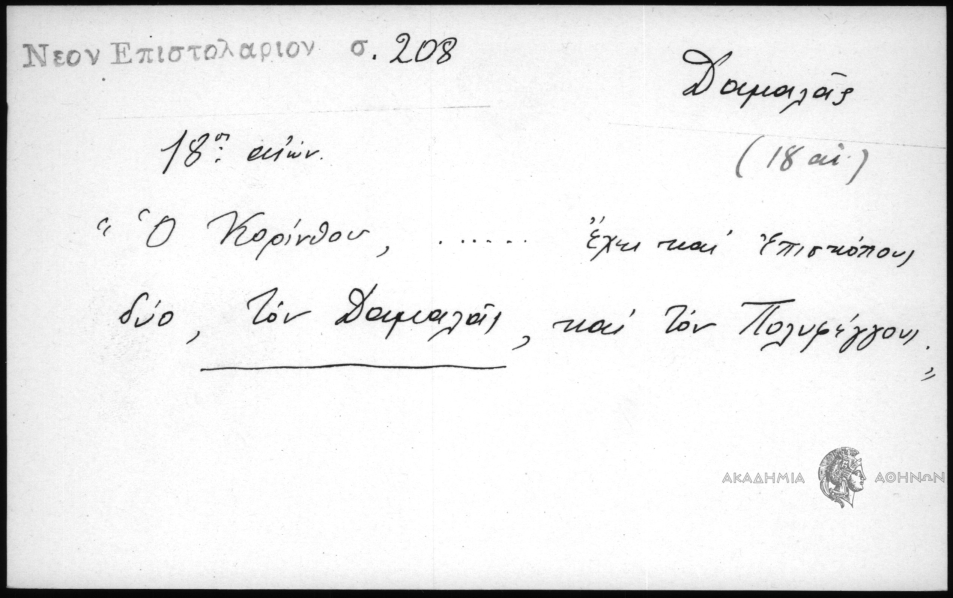 Νεον Επιστολαριον σ. 208
Δαμαλᾶς
18ος αἰών.
(18 αἰ.)
"Ὁ Κορίνθου, ...... ἔχει καὶ Ἐπισκόπους
δύο, τὸν Δαμαλᾶς, καὶ τὸν Πολυφέγγους."
ΑΚΑΔΗΜΙΑ ΑΘΗΝΩΝ